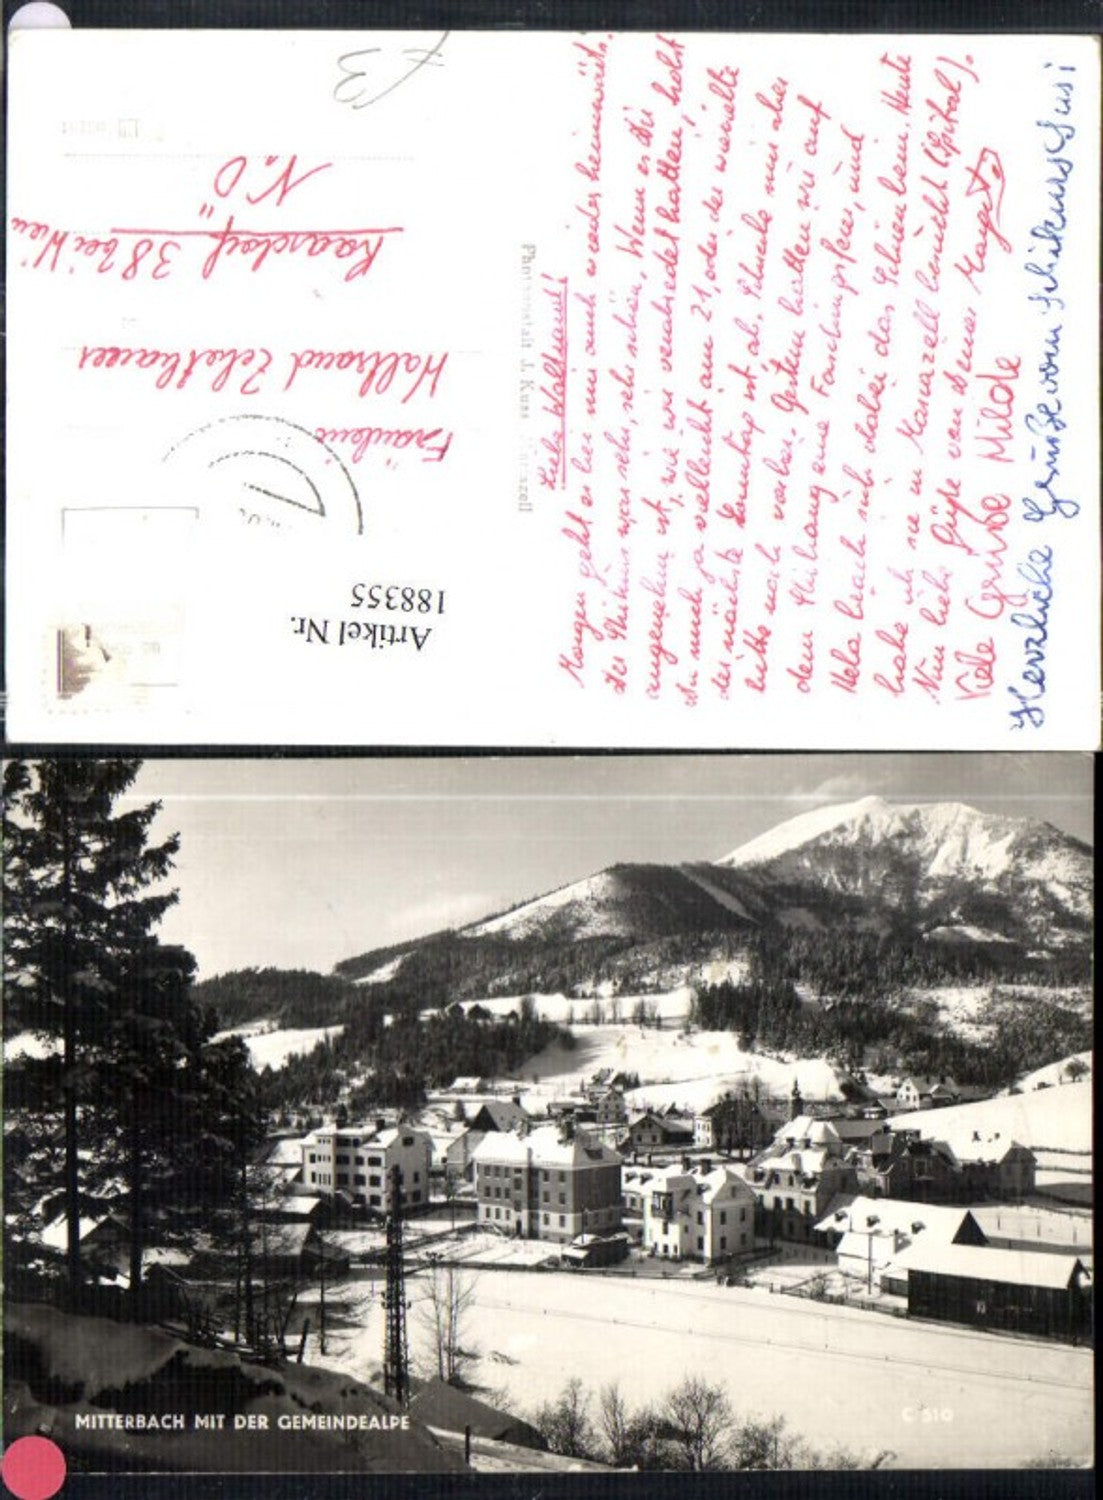 Liebe Waltraud!
Morgen geht es bei mir auch wieder heimwärts.
Der Skikurs war sehr, sehr schön. Wenn es dir
angenehm ist, wie wir verabredet hatten, holst
du mich ja vielleicht am 21. oder der wievielte
der nächste Sonntag ist ab. Schreibe mir aber
bitte noch vorher. Gestern hatten wir auf
dem Skihang eine Faschingsfeier, und
Hela brach sich dabei das Schienbein. Heute
habe ich sie in Mariazell besucht (Spital).
Nun liebe Grüße von deiner Margit
Viele Grüße Milde
Herzliche Grüße vom Schikurs Susi
Photoanstalt J. Kuss Mariazell
Fräulein
Waltraud
Kaarsdorf 38 bei Wien
N.Ö
£3
Artikel Nr.
188355
MITTERBACH MIT DER GEMEINDEALPE
C 510